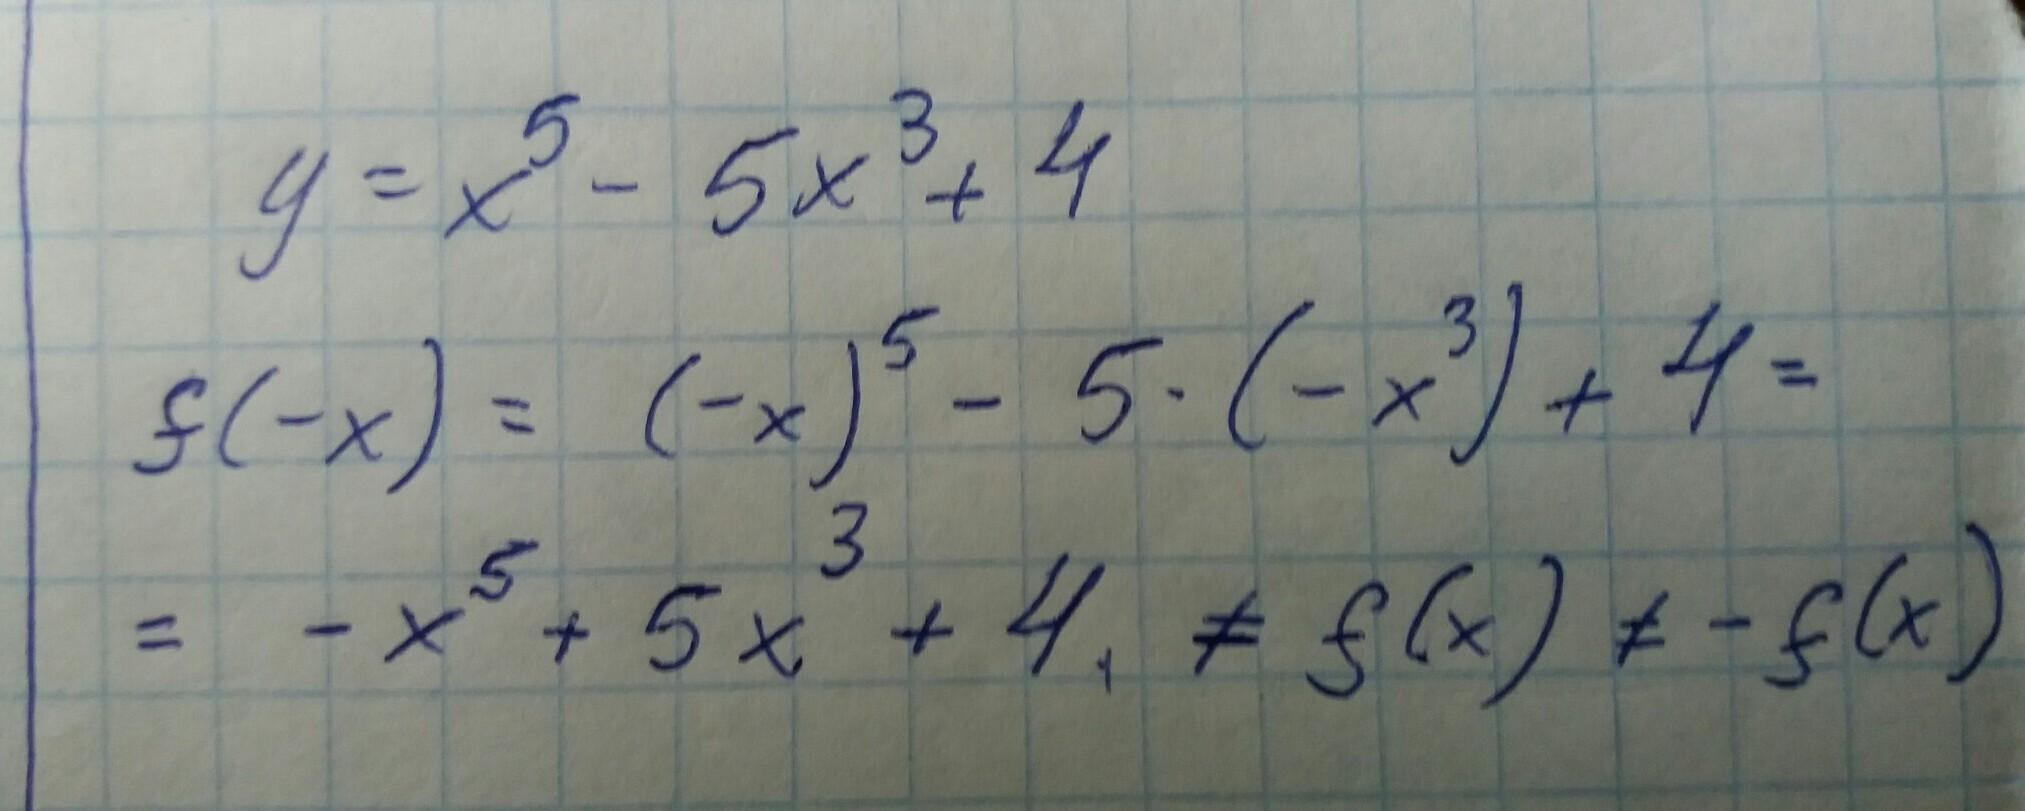 y = x⁵ - 5x³ + 4
f(-x) = (-x)⁵ - 5·(-x³) + 4 =
= -x⁵ + 5x³ + 4, ≠ f(x) ≠ -f(x)